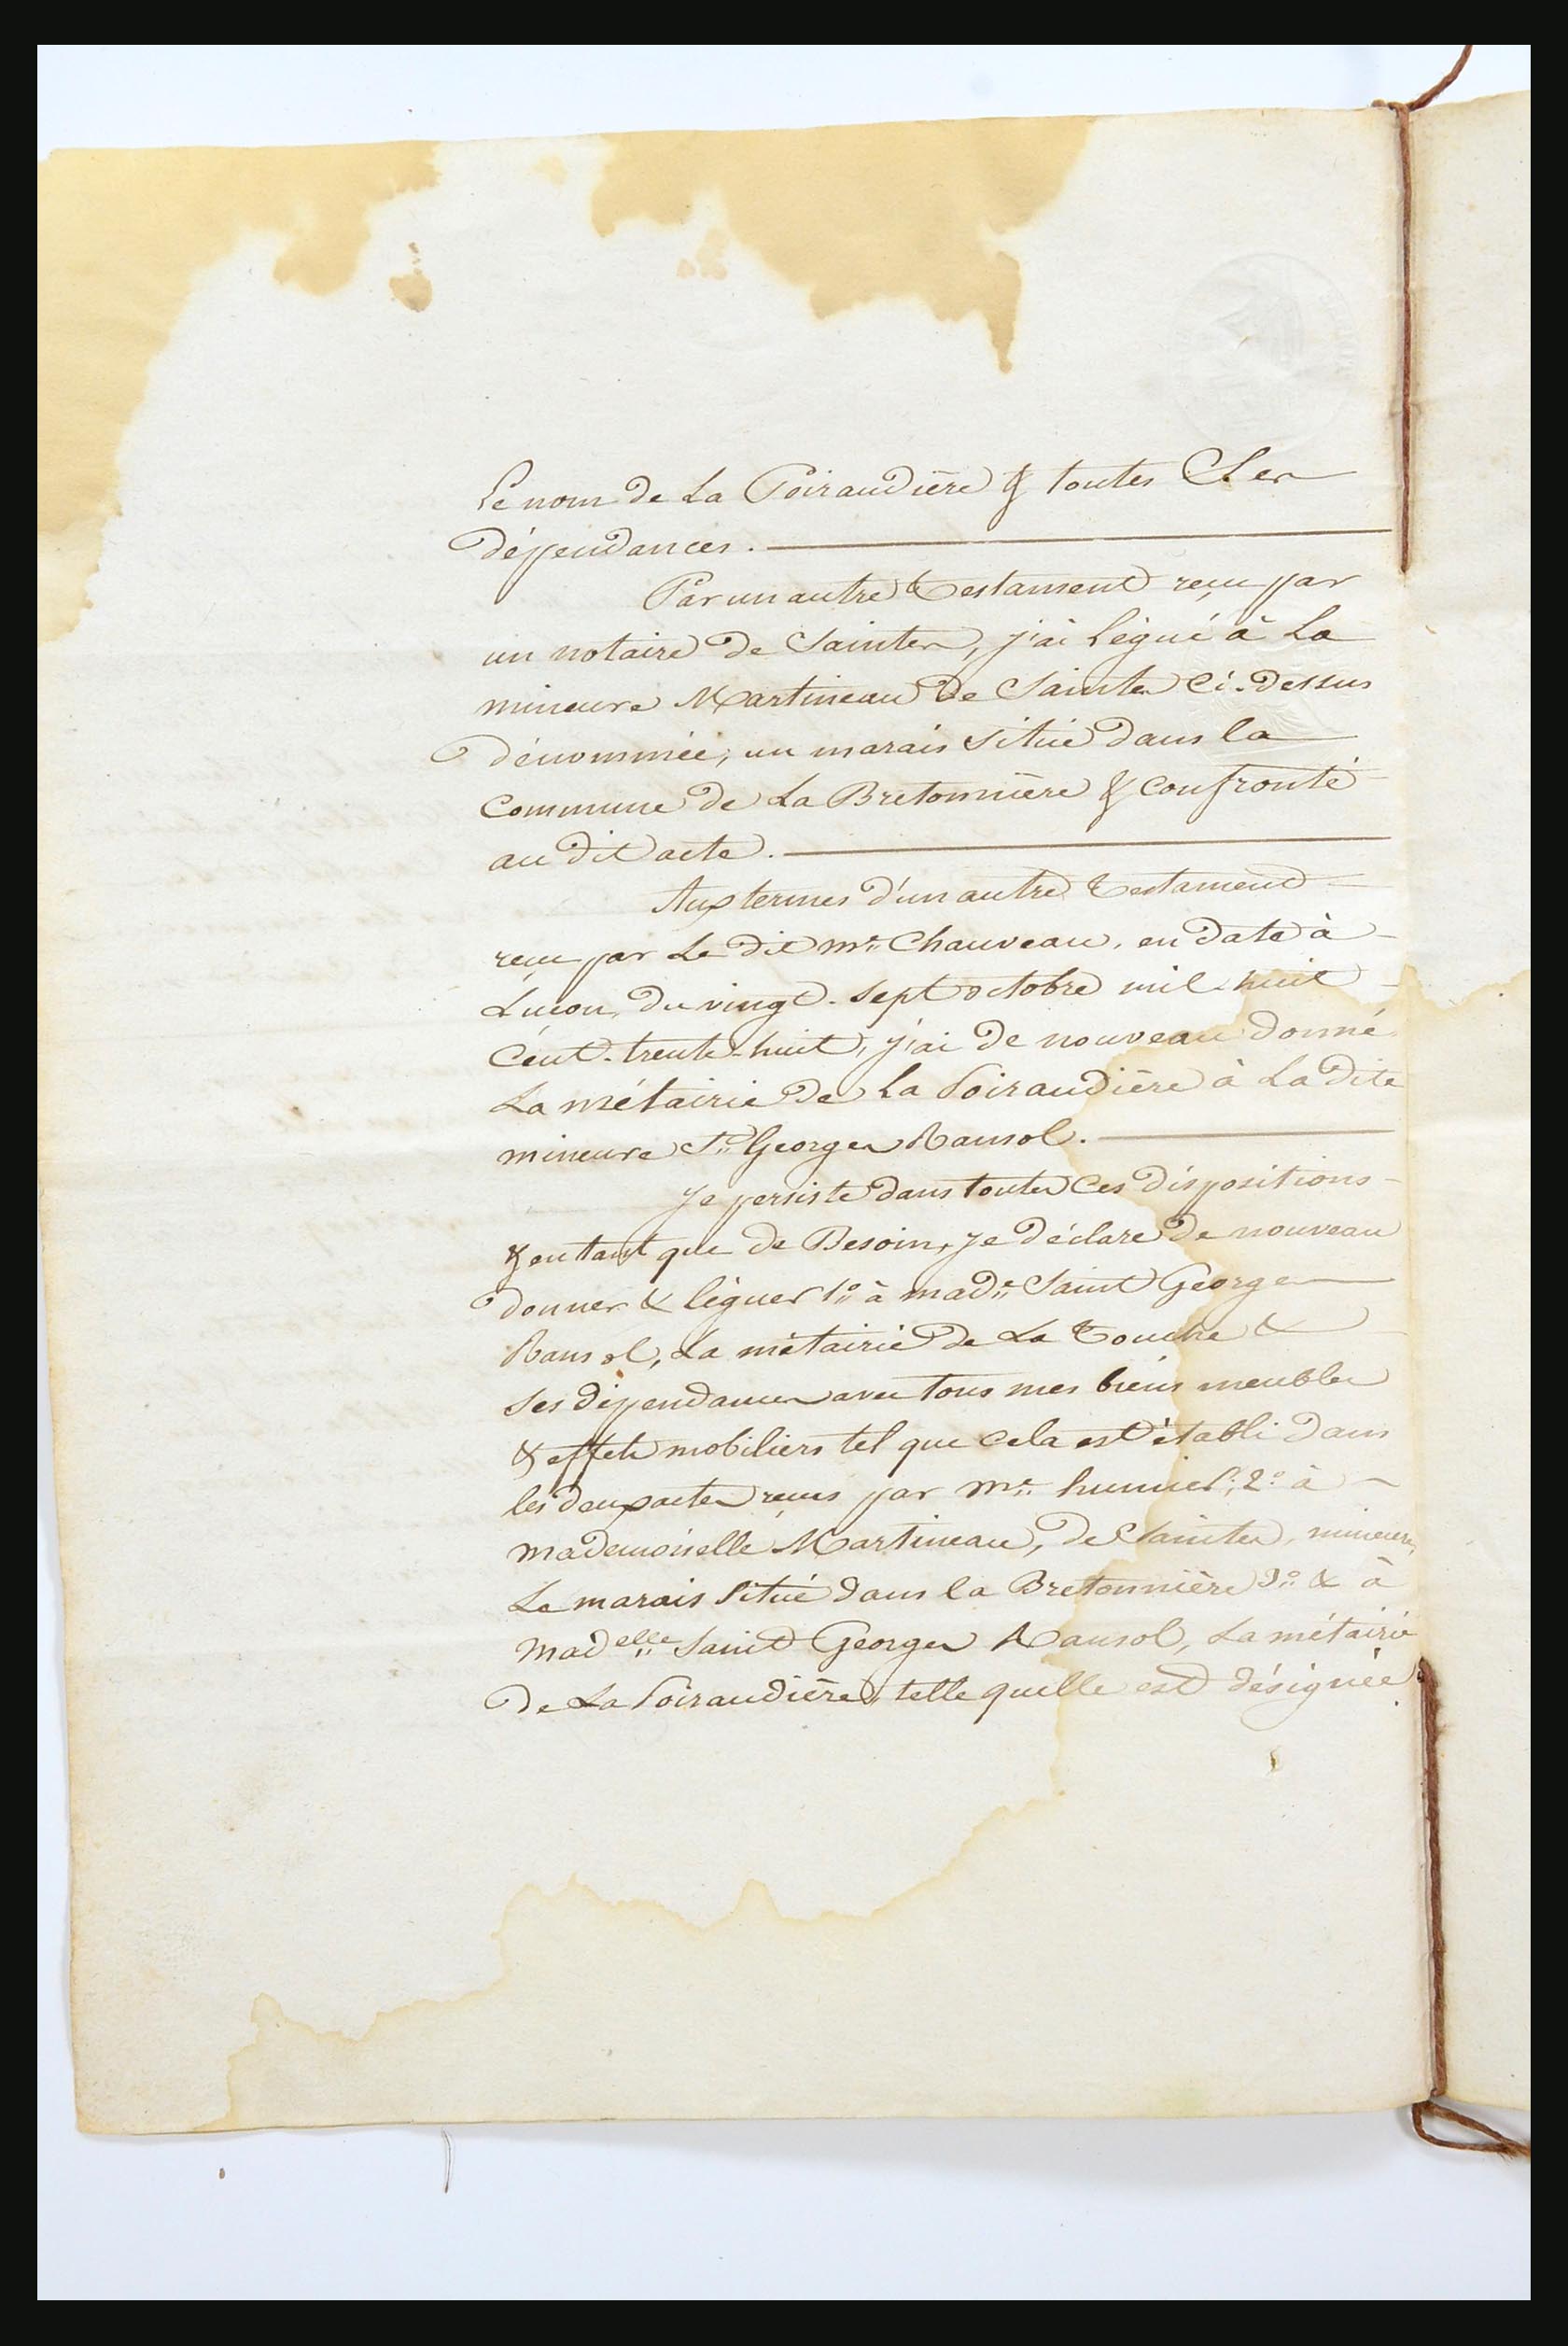 Le nom de La Poiraudière & toutes Ses
dépendances.
Par un autre testament reçu par
un notaire de Saintes, j'ai légué à La
mineure Martineau de Saintes Ci-dessus
dénommée, un marais situé dans la
Commune de La Bretonnière & confronté
au dit acte.
Aux termes d'un autre testament
reçu par Le dit Mᵉ Chauveau, en date à
Luçon, du vingt-sept octobre mil-huit
cent-trente-huit, j'ai de nouveau donné
La métairie de La Poiraudière à La dite
mineure Sᵗ Georges Ransol.
Je persiste dans toutes Ces dispositions
& en tant que de Besoin, je déclare de nouveau
donner & léguer 1º à madᵉ Saint Georges
Ransol, La métairie de La Touche &
ses dépendances avec tous mes biens meubles
& effets mobiliers tel que cela est établi dans
les deux actes reçus par Mᵉ 2º à
mademoiselle Martineau, de Saintes, mineure,
Le marais situé dans la Bretonnière 3º & à
Madelle Saint Georges Ransol, La métairie
de La Poiraudière, telle quelle est désignée